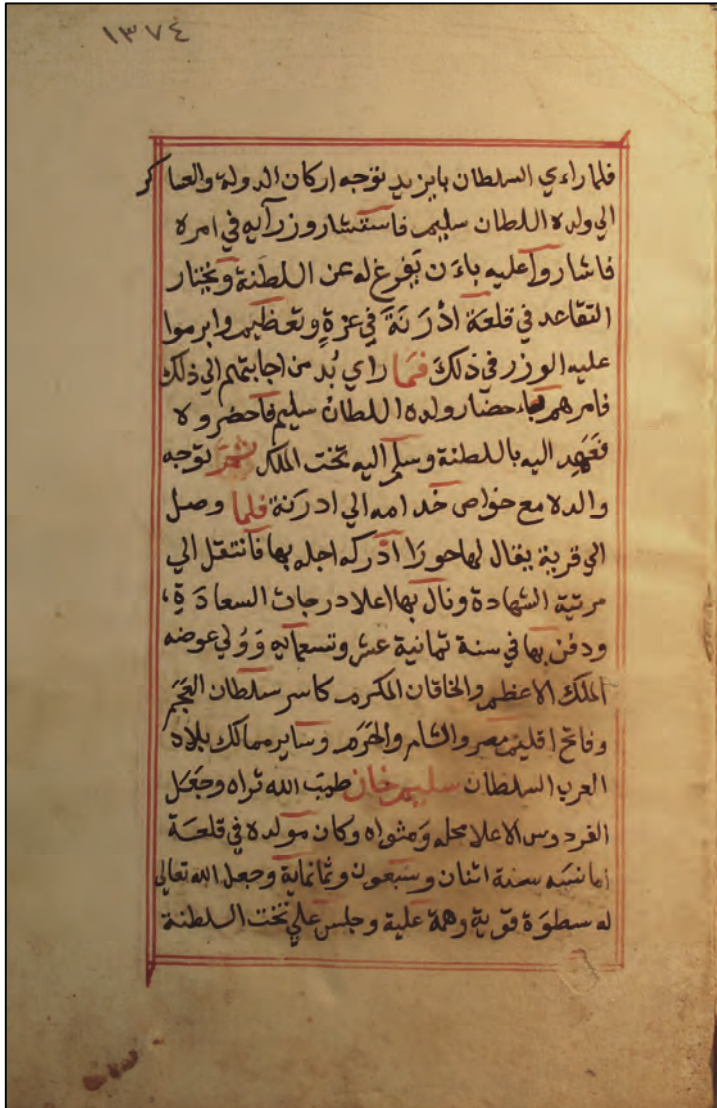 ١٣٧٤
فلما راءي السلطان بايزيد توجه اركان الدولة والعساكر
الي ولده اللطان سليم فاستشار وزرآيه في امره
فاشاروا عليه باءن يفرغ له عن اللطنة ويختار
التقاعد في قلعة اذرنة في عزةٍ وتعظيم وابرموا
عليه الوزر في ذلك فما راي بُد من اجابتهم الي ذلك
فامرهم باءحضار ولده اللطان سليم فاحضروه
فعَهِد اليه باللطنة وسلم اليه تخت الملك ثم توجه
والده مع خواص خدامه الي ادرنة فلما وصل
الي قرية يقال لها حورا ادركه اجله بها فانتقل الي
مرتبة الشهادة ونال بها اعلا درجات السعادة،
ودفن بها في سنة ثمانية عشر وتسعمايه وَوُلي عوضه
الملك الاعظم والخاقان المكرم كاسر سلطان العجم
وفاتح اقليم مصر والشام والحرم وساير ممالك بلاد
العرب السلطان سليم خان طيب الله ثراه وجعل
الفردوس الاعلا محله ومثواه وكان مولده في قلعة
اماسيه سنة اثنان وسبعون وثمانماية وجعل الله تعالى
له سطوة قوية وهمة علية وجلس علي تخت السلطنة